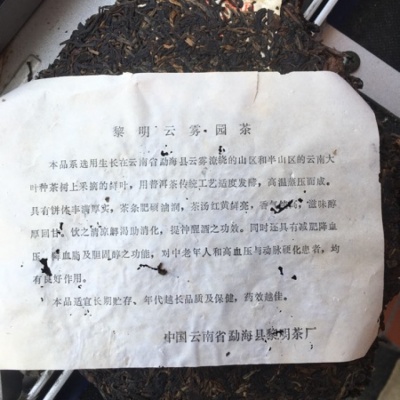 黎明云雾·园茶
本品系选用生长在云南省勐海县云雾缭绕的山区和半山区的云南大
叶种茶树上采摘的鲜叶，用普洱茶传统工艺适度发酵，高温蒸压而成。
具有饼体丰满厚实，茶条肥硕油润，茶汤红黄鲜亮，香气 滋味醇
厚回甘，饮之清凉解渴助消化，提神醒酒之功效。同时还具有减肥降血
压、 血脂及胆固醇之功能，对中老年人和高血压与动脉硬化患者，均
有良好作用。
本品适宜长期贮存、年代越长品质及保健，药效越佳。
中国云南省勐海县黎明茶厂